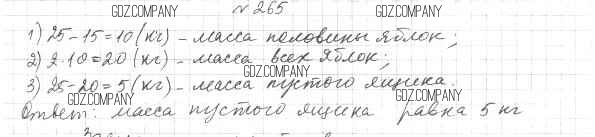 № 265
GDZ.COMPANY GDZ.COMPANY
1) 25-15=10 (кг) - масса половины яблок;
2) 2·10=20 (кг) - масса всех яблок;
GDZ.COMPANY
3) 25-20=5 (кг) - масса пустого ящика.
GDZ.COMPANY GDZ.COMPANY
Ответ: масса пустого ящика равна 5 кг